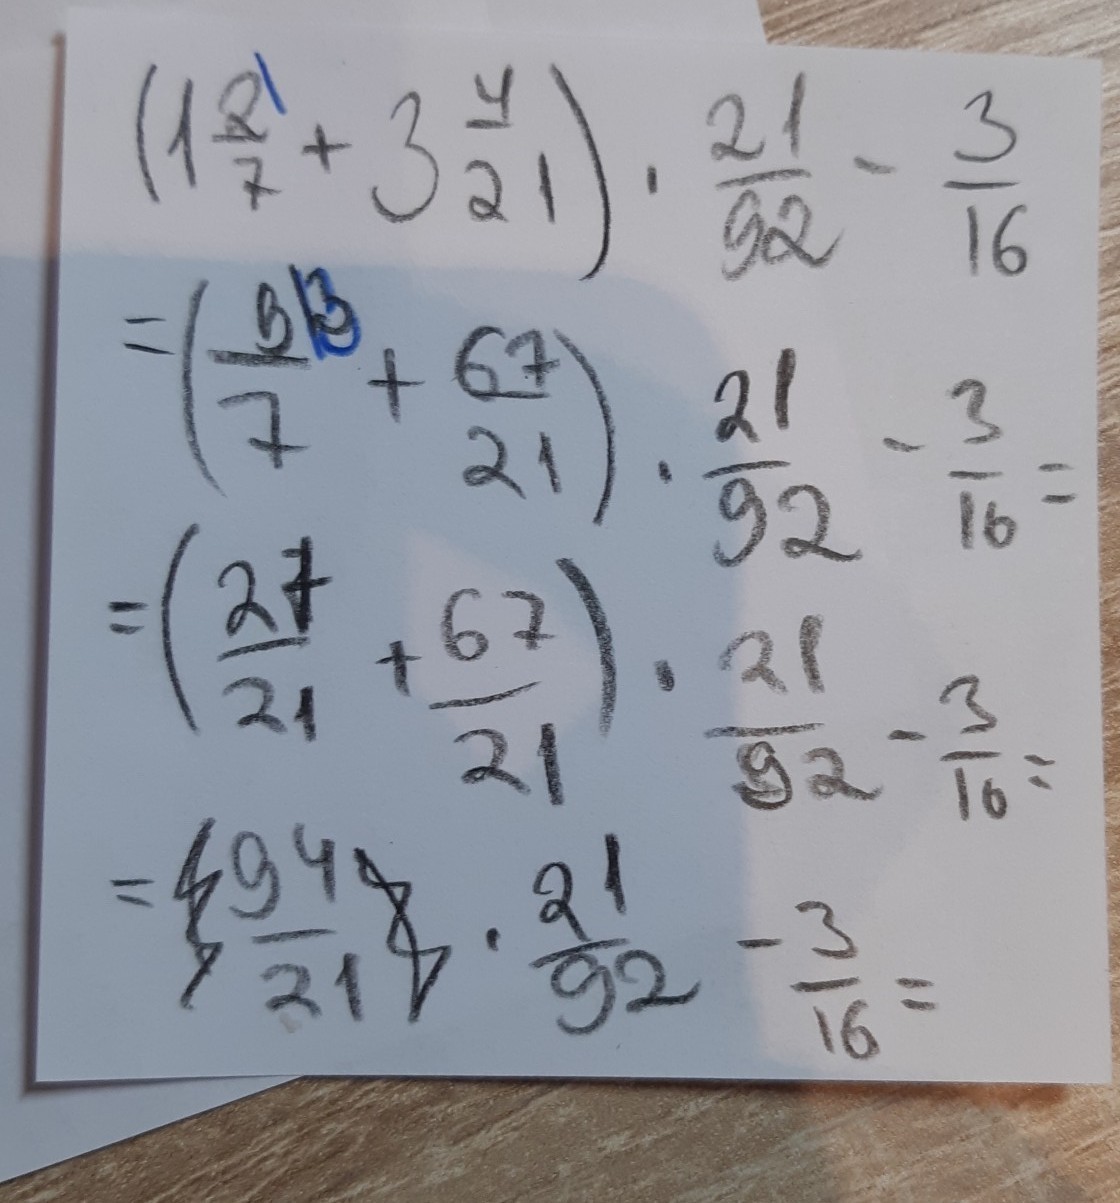 (1 2/7 + 3 4/21) · 21/92 - 3/16
= (9/7 + 67/21) · 21/92 - 3/16 =
= (27/21 + 67/21) · 21/92 - 3/16 =
= 94/21 · 21/92 - 3/16 =